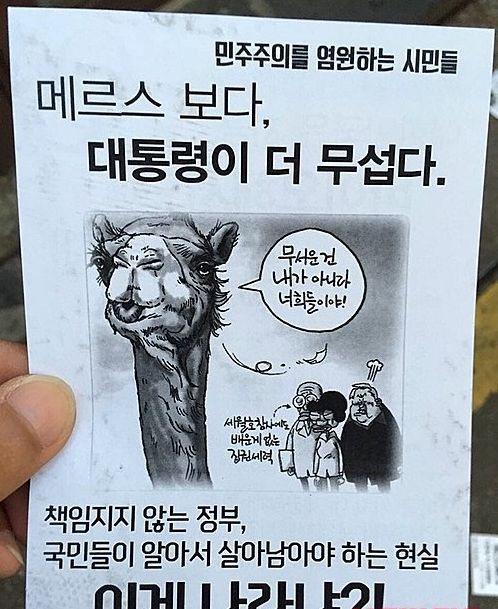 민주주의를 염원하는 시민들
메르스 보다,
대통령이 더 무섭다.
무서운건
내가 아니라
너희들이야!
세월호참사에도
배운게 없는
집권세력
책임지지 않는 정부,
국민들이 알아서 살아남아야 하는 현실
이게 나라냐?!